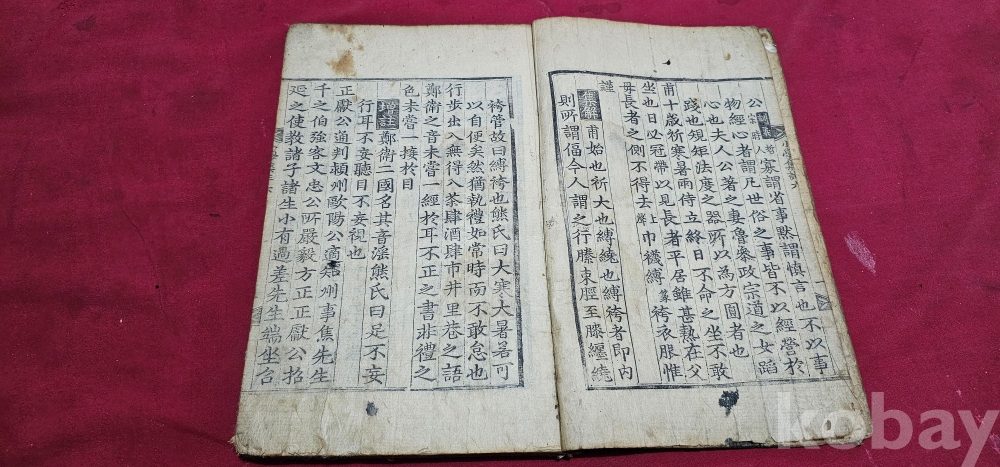 寡謂省事默謂慎言也不以事
物經心者謂凡世俗之事皆不以經營於
心也夫人公著之妻魯參政宗道之女蹈
踐也規矩法度之器所以為方圓者也
甫十歲祈寒暑雨侍立終日不命之坐不敢
坐也日必冠帶以見長者平居雖甚熱在父
母長者之側不得去上聲巾襪縛篆袴衣服惟
謹
集解 甫始也祈大也縛繞也縛袴者即內
則所謂偪今人謂之行縢束脛至膝纏繞
袴管故曰縛袴也熊氏曰大寒大暑若可
以自便矣然猶執禮如常時而不敢怠也
行步出入無得入茶肆酒肆市井里巷之語
鄭衛之音未嘗一經於耳不正之書非禮之
色未嘗一接於目
增註 鄭衛二國名其音淫熊氏曰足不妄
行耳不妄聽目不妄視也
正獻公通判潁州歐陽公適知州事焦先生
千之伯強客文忠公所嚴毅方正正獻公招
延之使教諸子諸生小有過差先生端坐召
kobay